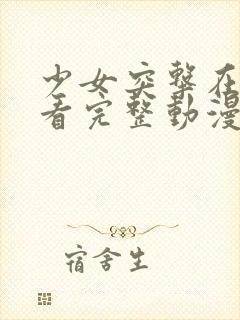 少女突擊在
看完整動漫
宿舍生